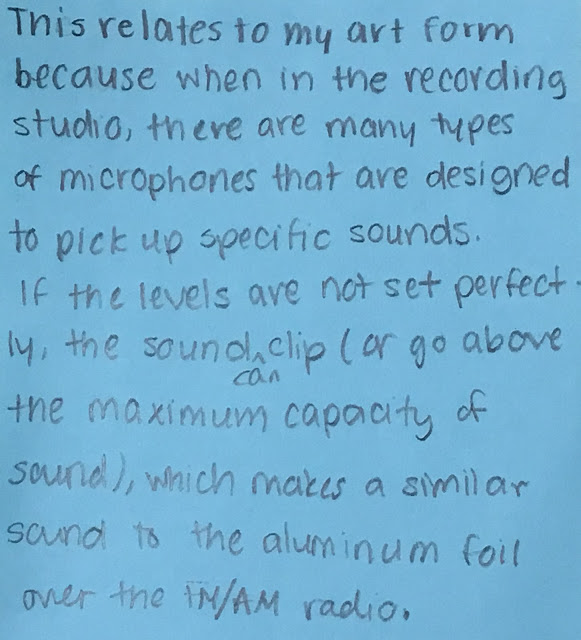 This relates to my art form
because when in the recording
studio, there are many types
of microphones that are designed
to pick up specific sounds.
If the levels are not set perfect-
ly, the sound^clip (or go above
can
the maximum capacity of
sound), which makes a similar
sound to the aluminum foil
over the FM/AM radio.